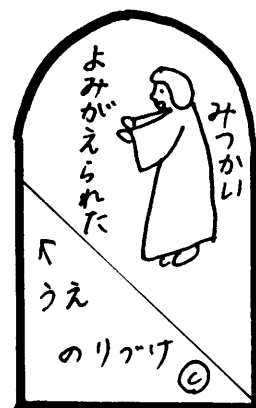 みつかい
よみがえられた
↑
うえ
のりづけ
Ⓒ